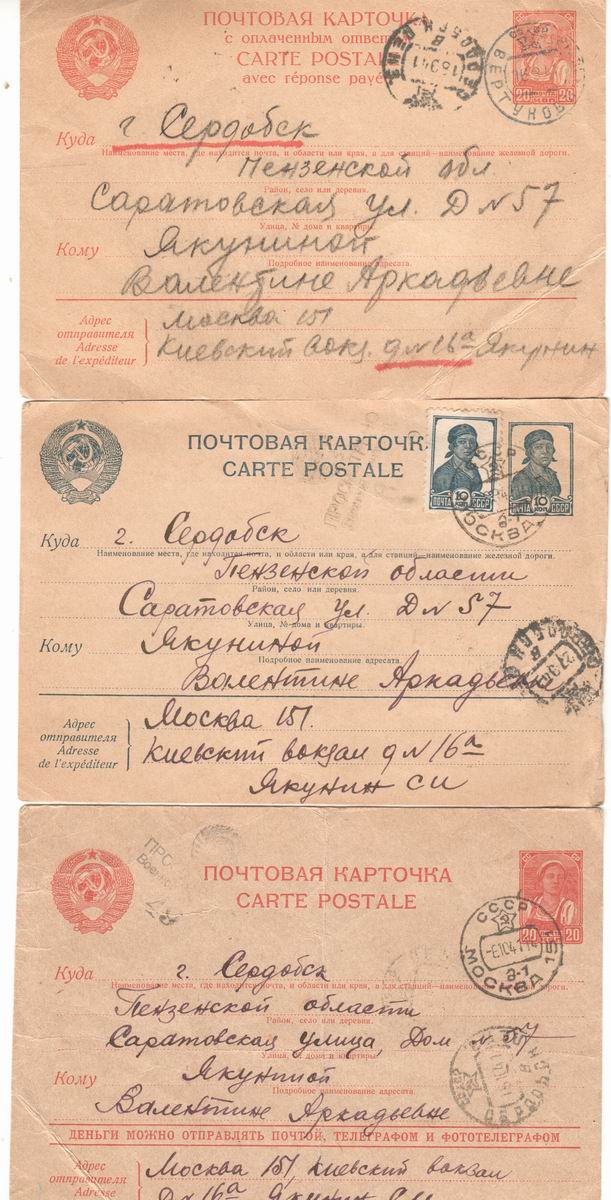 ПОЧТОВАЯ КАРТОЧКА
с оплаченным ответ
CARTE POSTALE
avec réponse payé
20 20
Куда г. Сердобск
Наименование места, где находится почта, и области или края, а для станций—наименование железной дороги.
Пензенской обл
Район, село или деревня.
Саратовская ул. Д N 57
Улица, № дома и квартиры.
Кому Якуниной
Подробное наименование адресата.
Валентине Аркадьевне
Адрес отправителя
Adresse de l'expéditeur
Москва 151
Киевский вокз. д N 16а Якунин
ПОЧТОВАЯ КАРТОЧК
CARTE POSTALE
ПОЧТА 10 КОП СССР
ПОЧТА 10 КОП СССР
МОСКВА
Куда г. Сердобск
Наименование места, где находится почта, и области или края, а для станций—наименование железной дороги.
Пензенской области
Район, село или деревня.
Саратовская ул. Д N 57
Улица, № дома и квартиры.
Кому Якуниной
Подробное наименование адресата.
Валентине Аркадьевн
Адрес отправителя
Adresse de l'expéditeur
Москва 151.
Киевский вокзал д N 16а
Якунин СИ
ПОЧТОВАЯ КАРТОЧКА
CARTE POSTALE
20 20
СССР
МОСКВА 151
Куда г. Сердобск
Наименование места, где находится почта, и области или края, а для станций—наименование железной дороги.
Пензенской области
Район, село или деревня.
Саратовская улица, Дом N 57
Улица, № дома и квартиры.
Кому Якуниной
Подробное наименование адресата.
Валентине Аркадьевне
ДЕНЬГИ МОЖНО ОТПРАВЛЯТЬ ПОЧТОЙ, ТЕЛЕГРАФОМ И ФОТОТЕЛЕГРАФОМ
Адрес отправителя
Adresse
Москва 151, киевский вокзал
Д N 16а Якунин С.И.